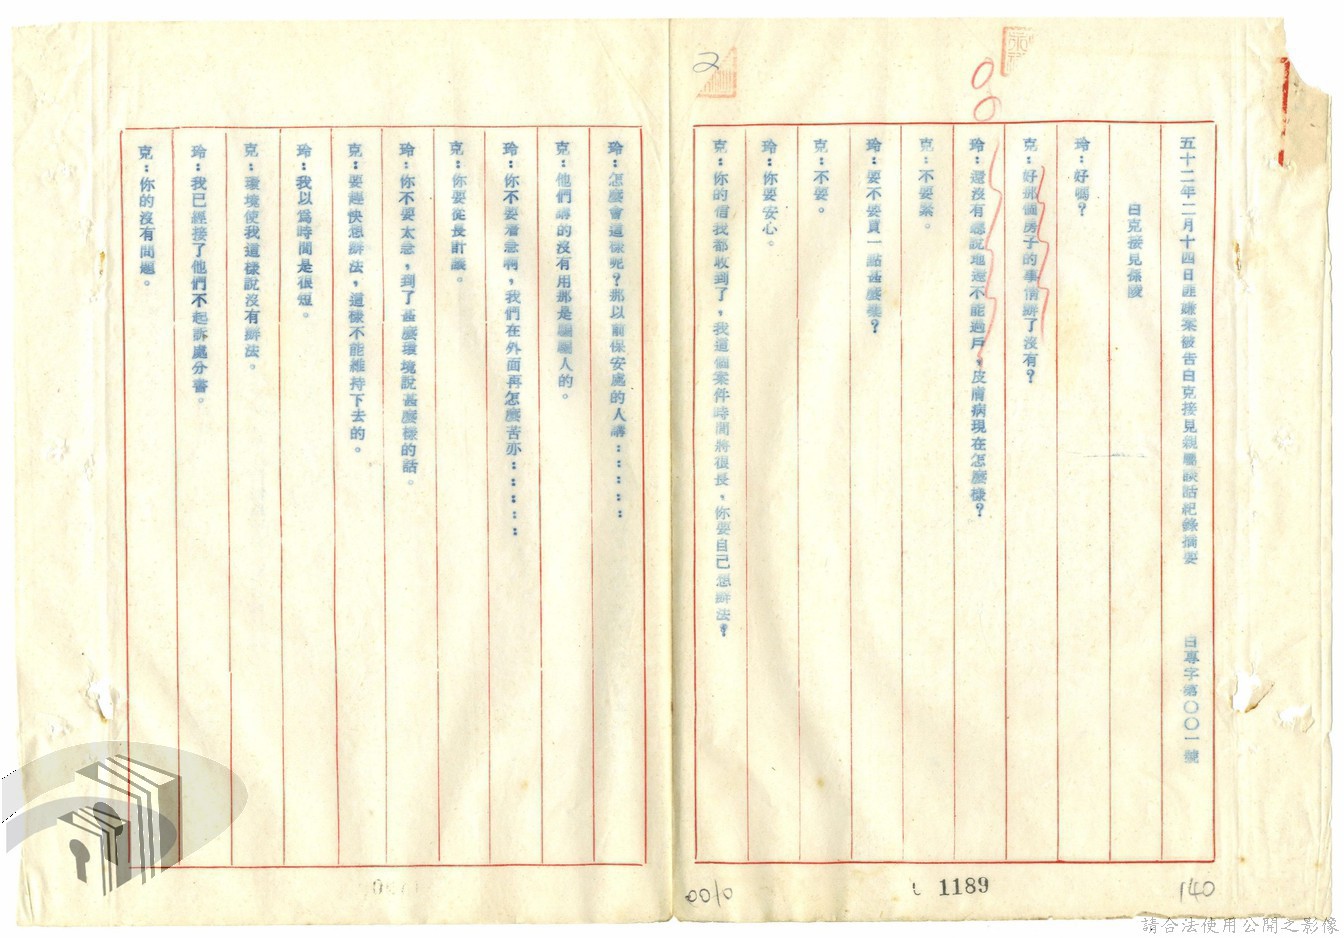 五十二年二月十四日匪嫌案被告白克接見親屬談話紀錄摘要 白專字第〇〇一號
白克接見孫陵
玲：好嗎？
克：好那個房子的事情辦了沒有？
玲：還沒有聽說地還不能過戶，皮膚病現在怎麼樣？
克：不要緊。
玲：要不要買一點甚麼藥？
克：不要。
玲：你要安心。
克：你的信我都收到了，我這個案件時間將很長，你要自己想辦法？
玲：怎麼會這樣呢？那以前保安處的人講：：：：：
克：他們講的沒有用那是騙騙人的。
玲：你不要着急啊，我們在外面再怎麼苦亦：：：：：
克：你要從長計議。
玲：你不要太急，到了甚麼環境說甚麼樣的話。
克：要趕快想辦法，這樣不能維持下去的。
玲：我以為時間是很短。
克：環境使我這樣說沒有辦法。
玲：我已經接了他們不起訴處分書。
克：你的沒有問題。
2
0010
1189
140
請合法使用公開之影像